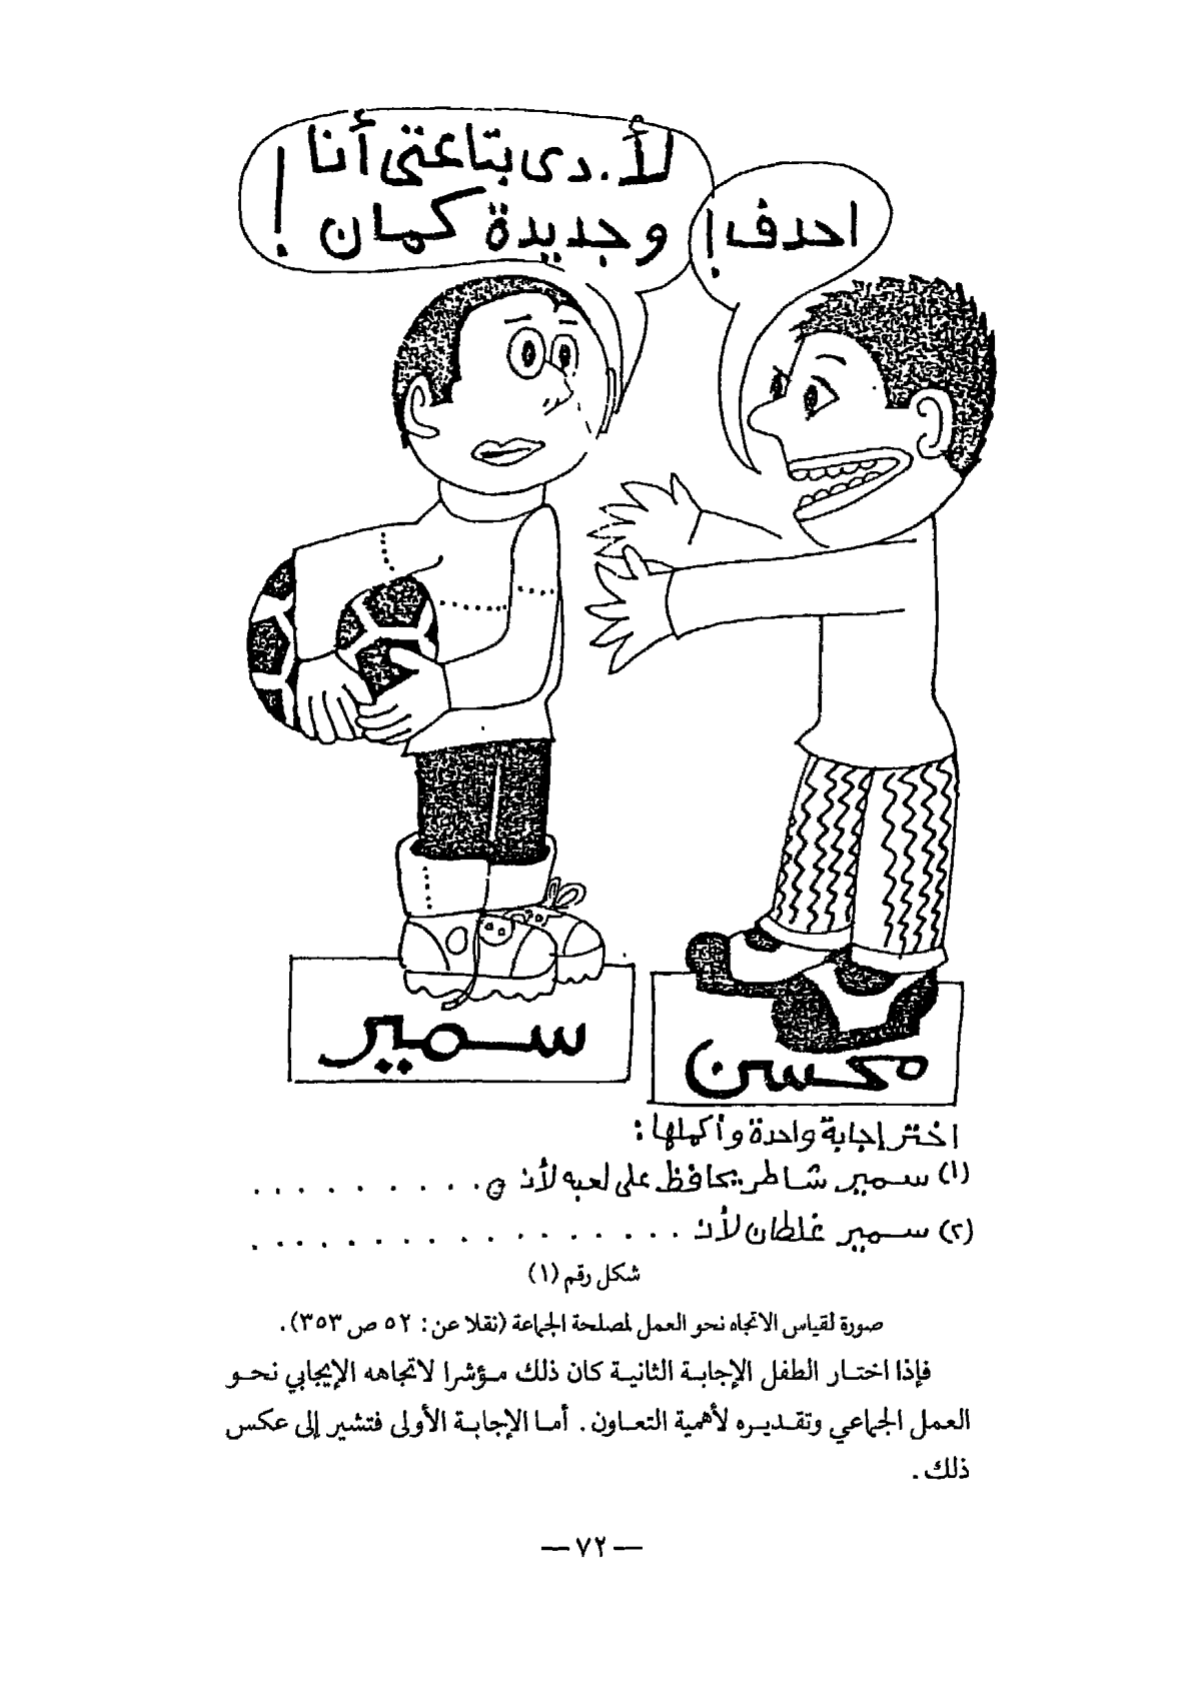 احدف!
لأ. دى بتاعتى أنا
وجديدة كمان!
سمير
محسن
اختر إجابة واحدة وأكملها:
(١) سمير شاطر يحافظ على لعبه لأنه . . . . . . . . .
(٢) سمير غلطان لأنه . . . . . . . . . . . . . . . .
شكل رقم (١)
صورة لقياس الاتجاه نحو العمل لمصلحة الجماعة (نقلا عن: ٥٢ ص ٣٥٣).
فإذا اختار الطفل الإجابة الثانية كان ذلك مؤشرا لاتجاهه الإيجابي نحو
العمل الجماعي وتقديره لأهمية التعاون. أما الإجابة الأولى فتشير إلى عكس
ذلك.
— ٧٢ —